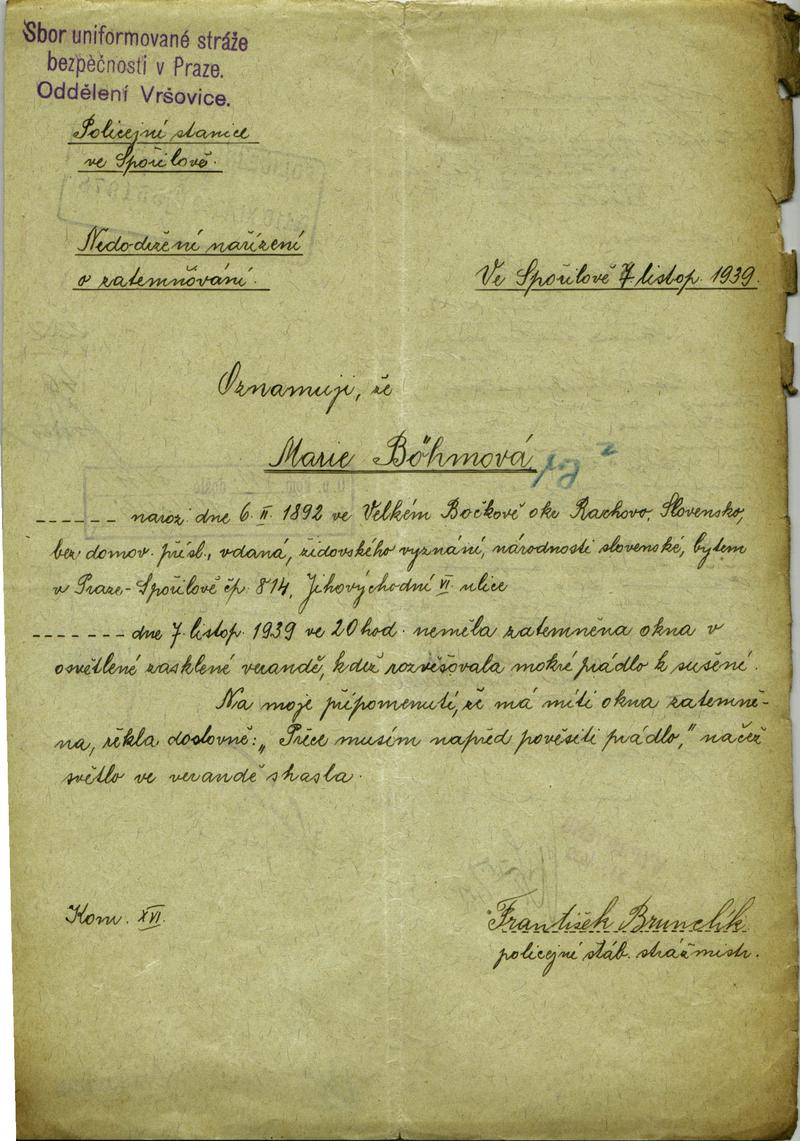 Sbor uniformované stráže
bezpečnosti v Praze.
Oddělení Vršovice.
Policejní stanice
ve Spořilově.
Nedodržení nařízení
o zatemňování.
Ve Spořilově 7. listop. 1939.
Oznamuji, že
Marie Böhmová,
------ naroz. dne 6. II. 1892 ve Velkém Bočkově okr. Rachovo, Slovensko,
bez domov. přísl., vdaná, židovského vyznání, národnosti slovenské, bytem
v Praze-Spořilově čp. 814, Jihovýchodní VI. ulice
------- dne 7. listop. 1939 ve 20 hod. neměla zatemněna okna v
osvětlené zasklené verandě, kdež rozvěšovala mokré prádlo k sušení.
Na moje připomenutí, že má míti okna zatemně-
na, řekla doslovně: „Přece musím napřed pověsiti prádlo," načež
světlo ve verandě shasla.
Kom. XVI.
František Brunclík
policejní štáb. strážmistr.